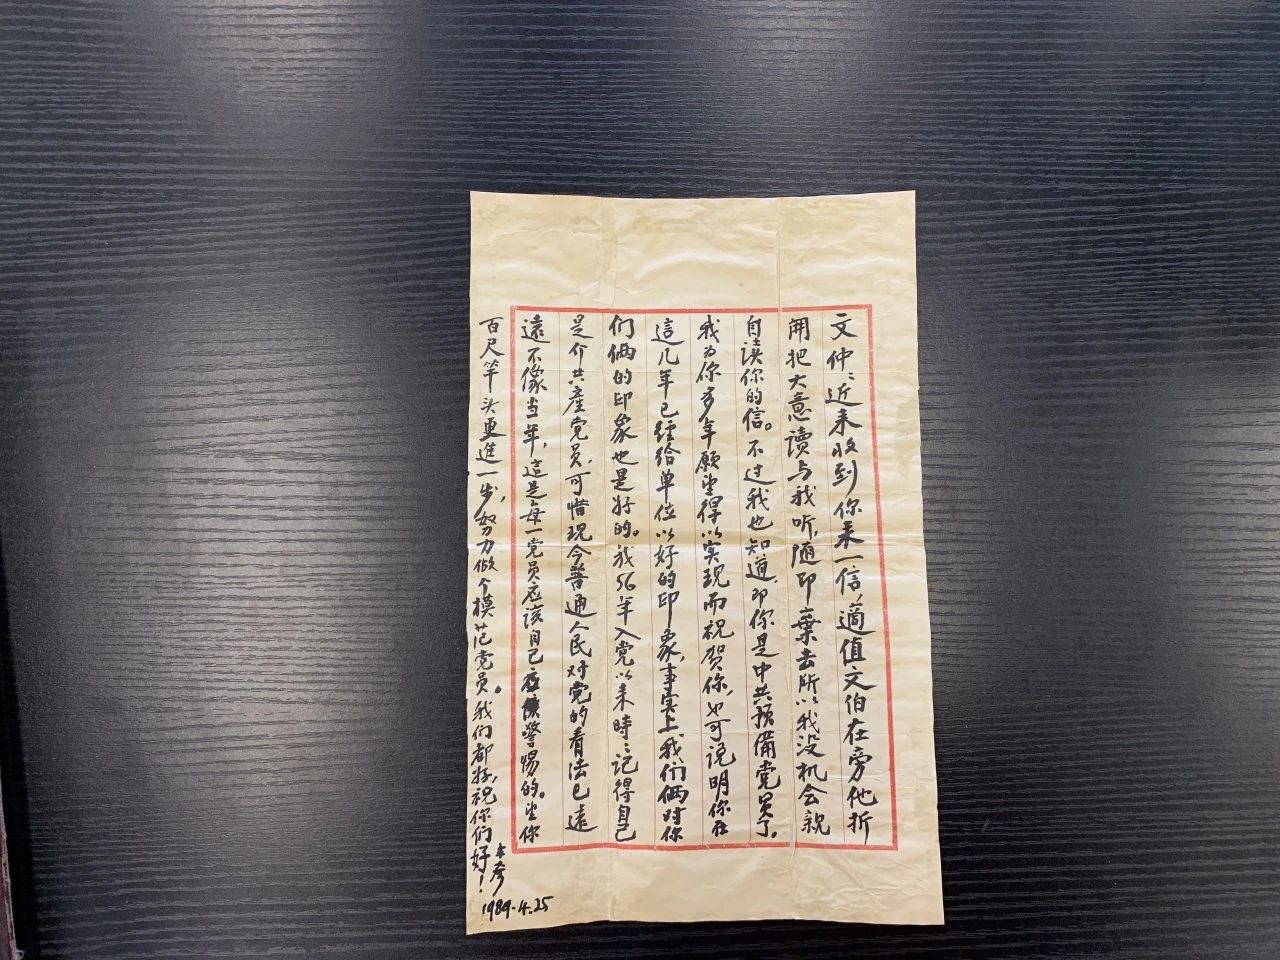 文仲：近来收到你来一信，適值文伯在旁他折
開把大意讀与我听，随即棄去所以我没机会親
自读你的信。不过我也知道，即你是中共預備党员了。
我为你多年願望得以实现而祝贺你，也可说明你在
這几年已經给单位以好的印象，事实上我们俩对你
们俩的印象也是好的。我56年入党以来時：记得自己
是个共產党员，可惜现今普通人民对党的看法已遠
遠不像当年，這是每一党员应该自己警惕的。望你
百尺竿头更進一步，努力做个模范党员。我们都好，祝你们好！
1989.4.25